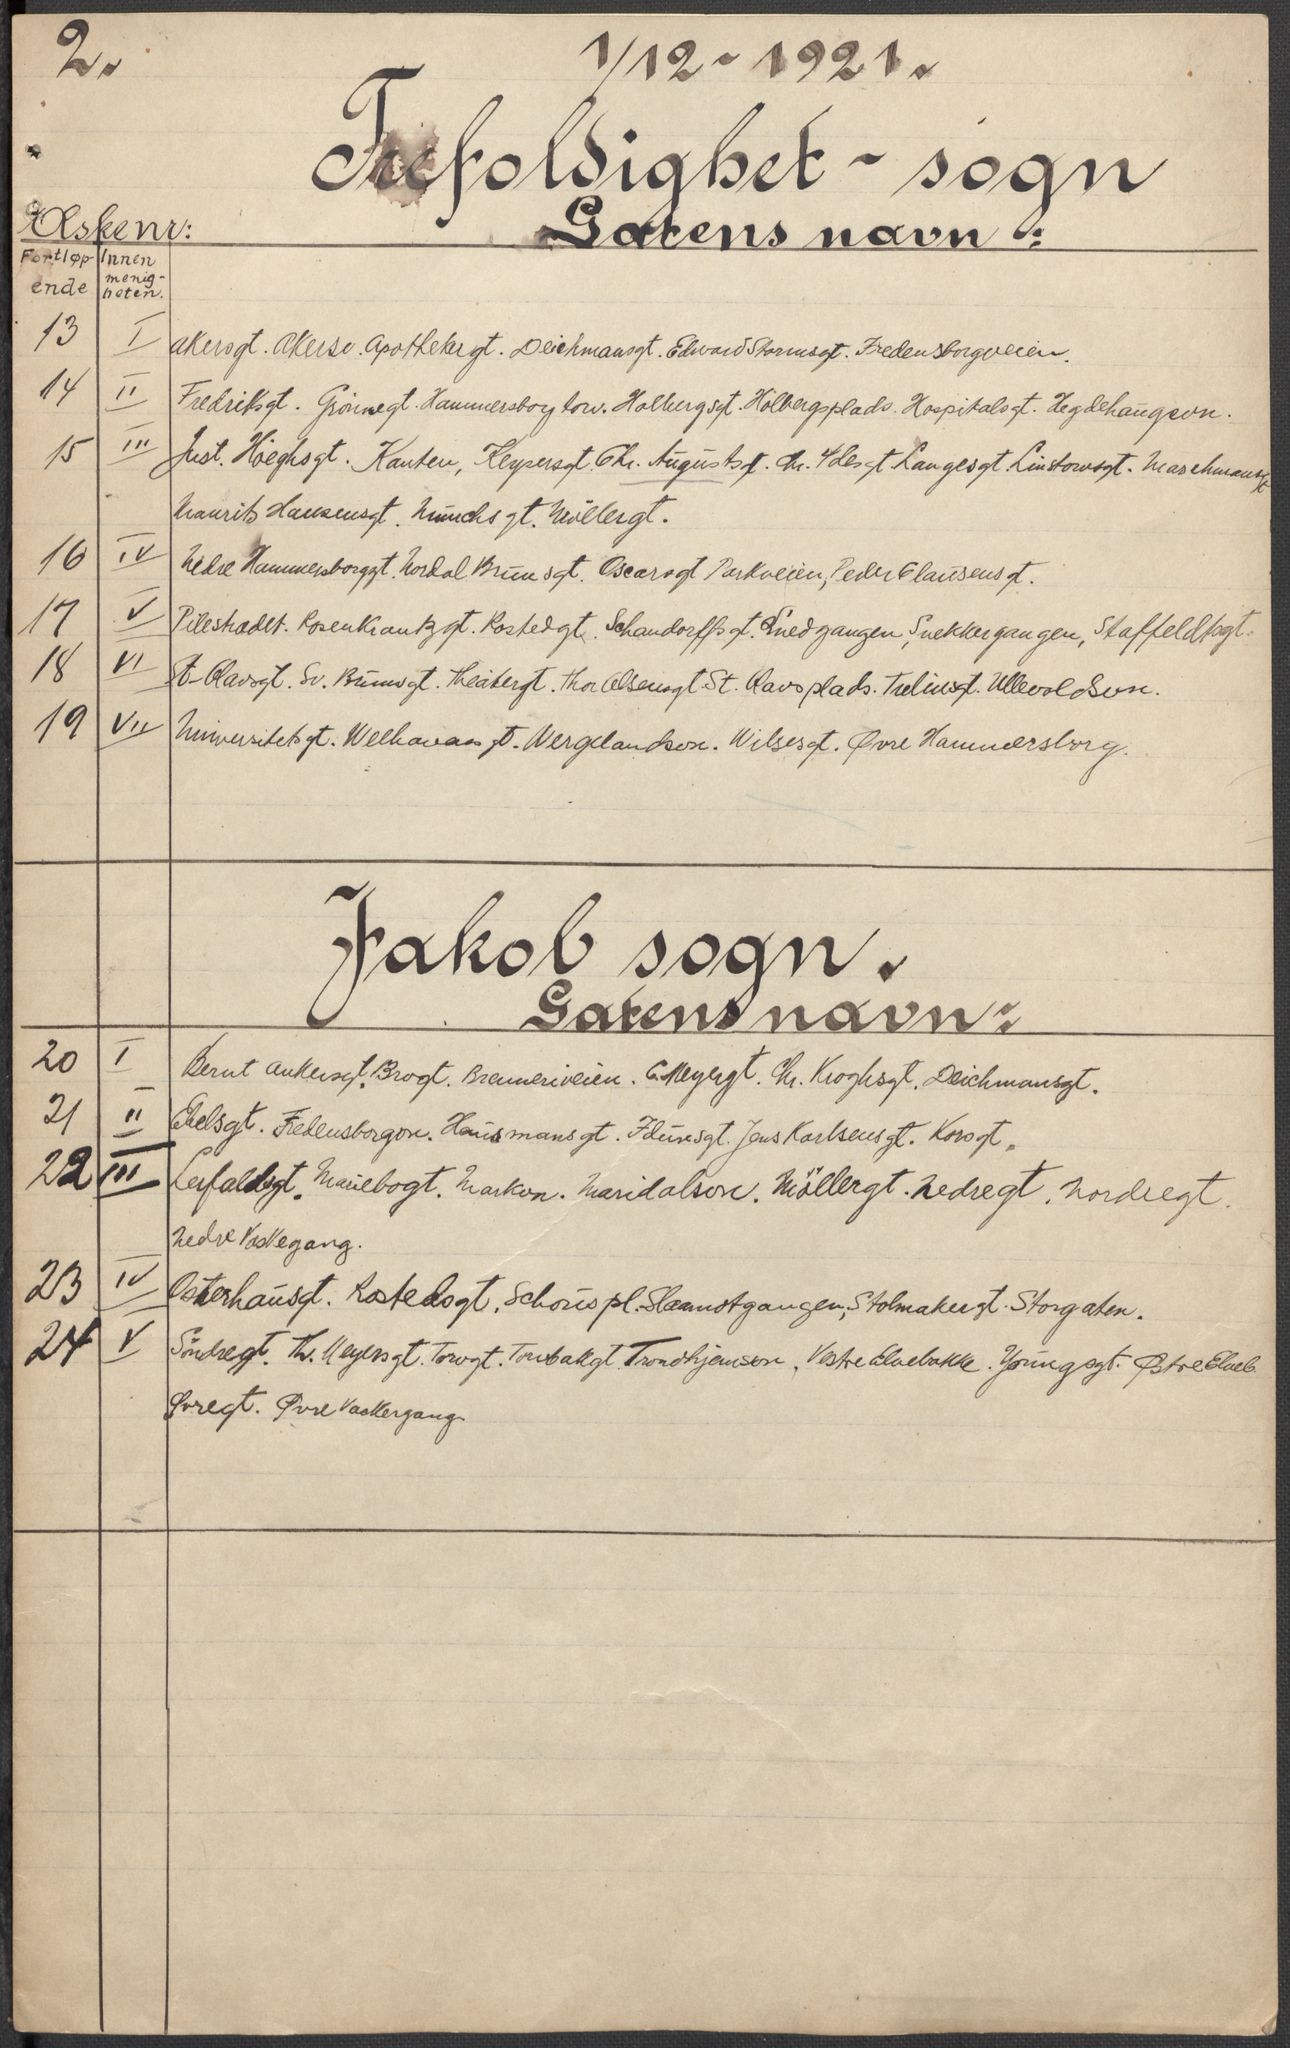 2.
1/12 - 1921.
Trefoldighet - sogn
Æskenr: Gatens navn:
Fortløp- Innen
ende menig-
heten.
13 I Akersgt. Akersv. Apothekergt. Deichmansgt. Edvard Stormsgt. Fredensborgveien.
14 II Fredriksgt. Grönnegt. Hammersborg torv. Holbergsgt. Holbergsplads. Hospitalsgt. Hegdehaugsvn.
15 III Just. Höeghsgt. Kanten, Keysersgt. Chr. Augustsgt. Chr. 4desgt. Langesgt. Linstowsgt.
Maurits Hansensgt. Munchsgt. Möllergt.
16 IV Nedre Hammersborggt. Nordal Brunsgt. Oscarsgt Parkveien, Peder Clausensgt.
17 V Pilestrædet. Rosenkrantzgt. Rostedgt. Schandorffsgt. Smedgangen, Snekkergangen, Staffeldtsgt.
18 VI St. Olavsgt. Sv. Brunsgt. Theatergt. Thor Olsensgt. St. Olavsplads. Tulinsgt. Ullevoldsvn.
19 VII Universitetsgt. Welhavensgt. Wergelandsvn. Wilsesgt. Øvre Hammersborg.
Jakob sogn.
Gatens navn:
20 I Bernt Ankersgt. Brogt. Brenneriveien. C. Meyergt. Chr. Kroghsgt. Deichmansgt.
21 II Ebelsgt. Fredensborgvn. Hausmansgt. Idunsgt. Jens Karlsensgt. Korsgt.
22 III Leirfaldsgt. Mariebogt. Markvn. Maridalsvn. Möllergt. Nedregt. Nordregt.
Nedre Vaskegang.
23 IV Osterhausgt. Rostedsgt. Schouspl. Slamotgangen, Stolmakergt. Storgaten.
24 V Söndregt. Th. Meyersgt. Torvgt. Torvbakgt. Trondhjemsvn. Vestre Elvebakke. Youngsgt. Østre Elveb.
Øvregt. Øvre Vaskergang